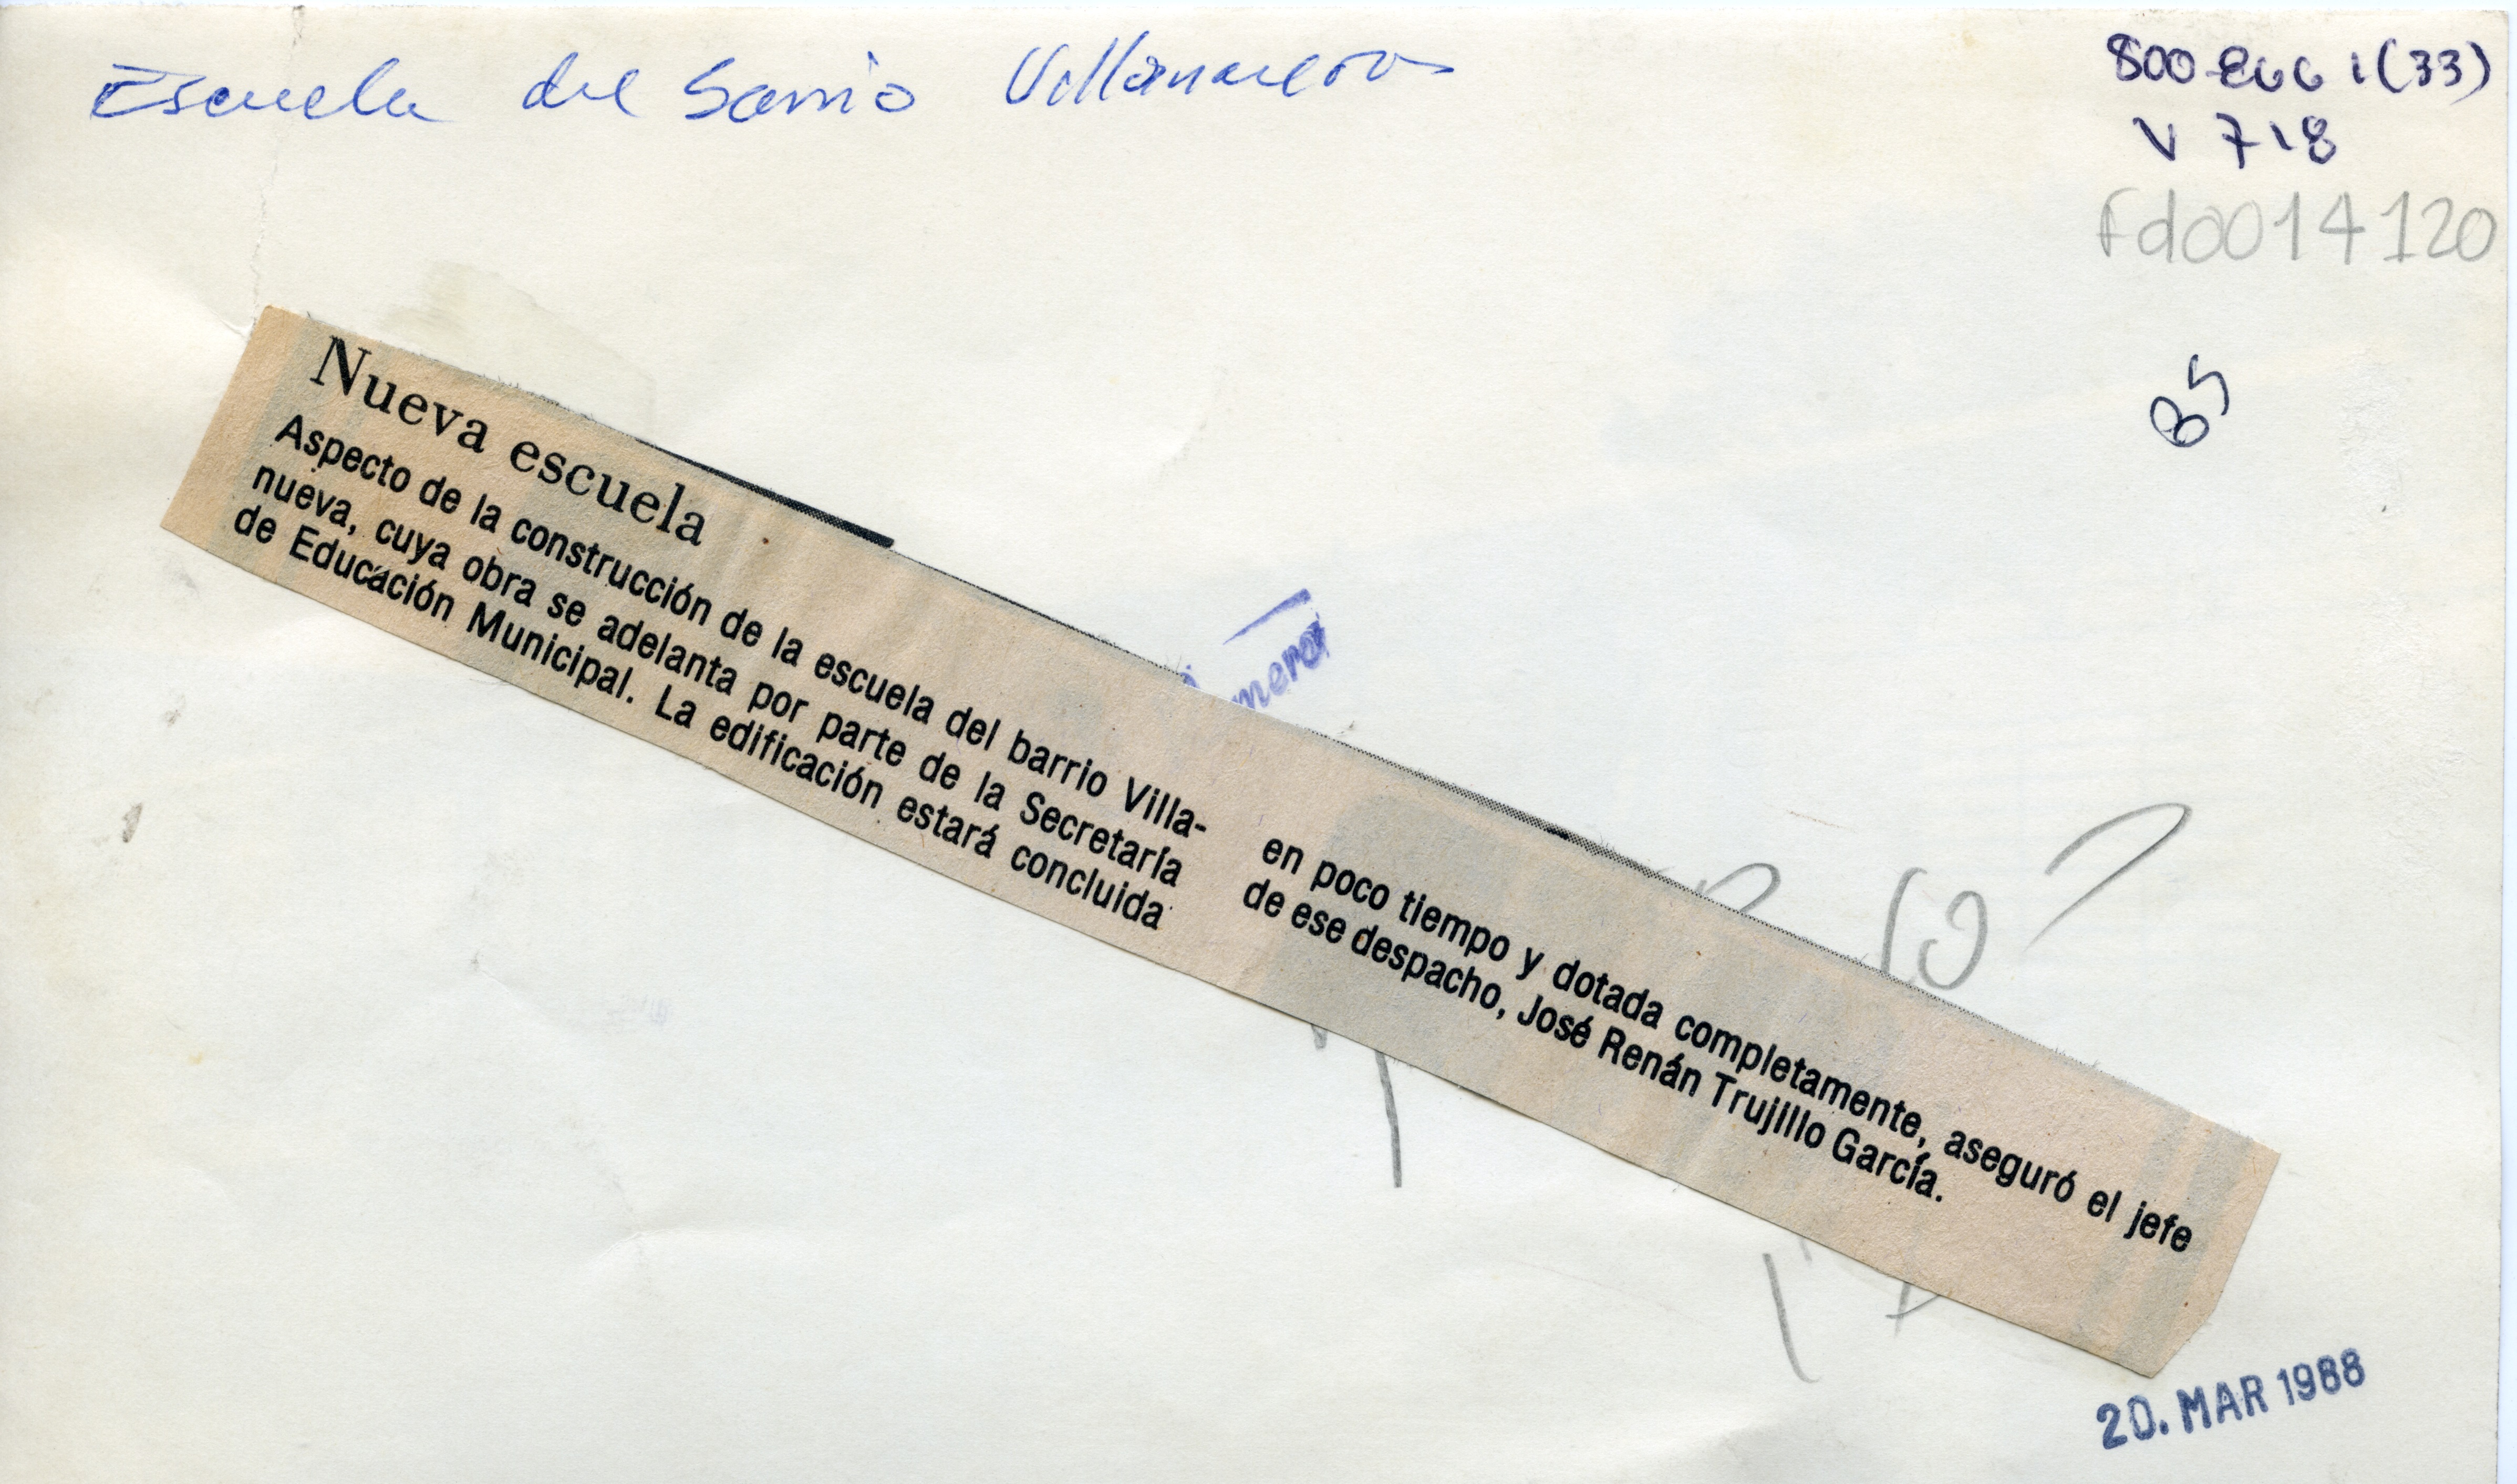 Escuela del barrio Villanueva
800-E66 1(33)
V 718
fd0014120
B5
Nueva escuela
Aspecto de la construcción de la escuela del barrio Villa-
nueva, cuya obra se adelanta por parte de la Secretaría
de Educación Municipal. La edificación estará concluida
en poco tiempo y dotada completamente, aseguró el jefe
de ese despacho, José Renán Trujillo García.
20. MAR 1988